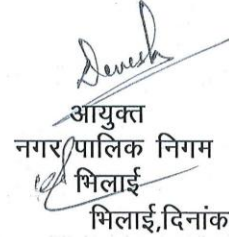 Devesh
आयुक्त
नगर पालिक निगम
भिलाई
भिलाई,दिनांक